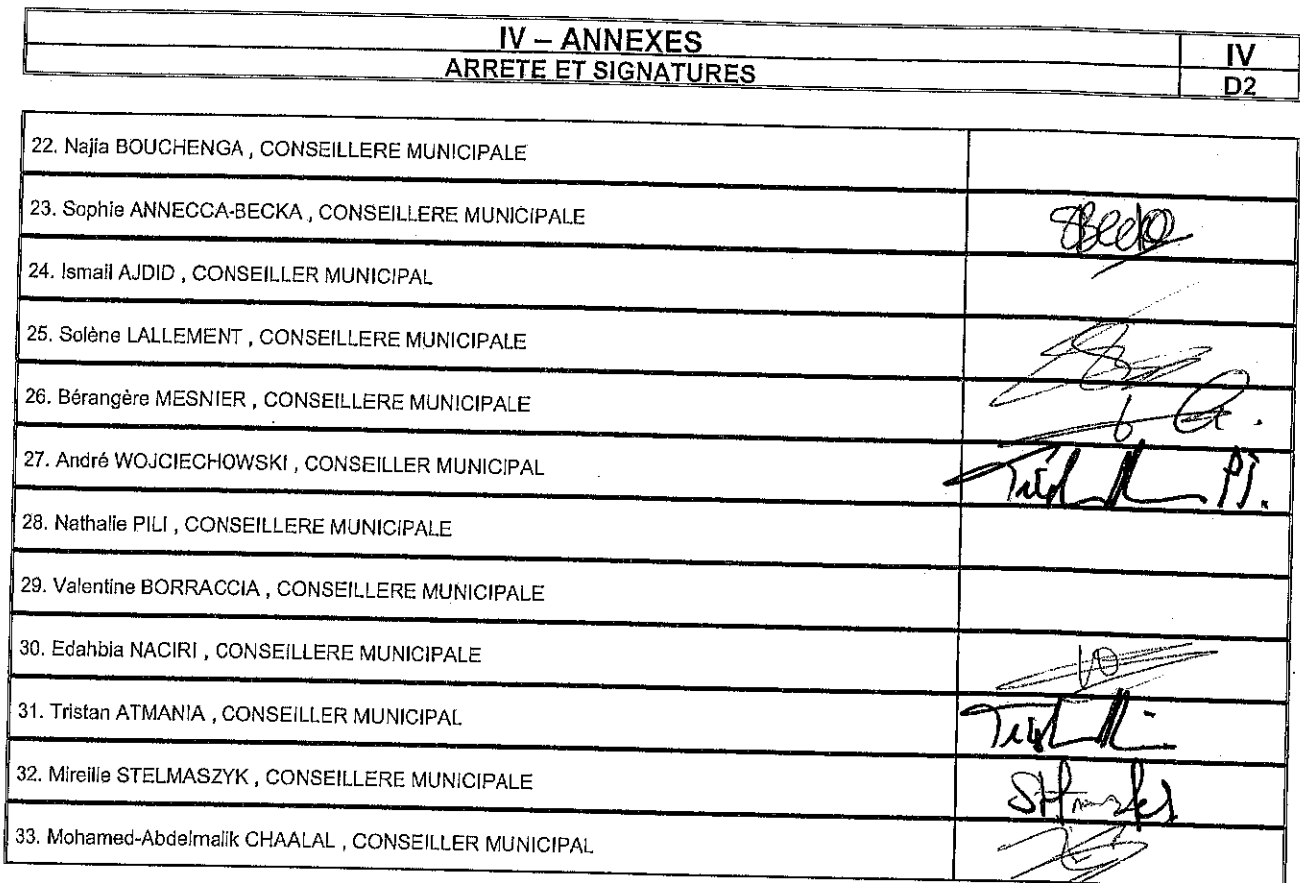 IV – ANNEXES
IV
ARRETE ET SIGNATURES
D2
22. Najia BOUCHENGA , CONSEILLERE MUNICIPALE
23. Sophie ANNECCA-BECKA , CONSEILLERE MUNICIPALE
24. Ismail AJDID , CONSEILLER MUNICIPAL
25. Solène LALLEMENT , CONSEILLERE MUNICIPALE
26. Bérangère MESNIER , CONSEILLERE MUNICIPALE
27. André WOJCIECHOWSKI , CONSEILLER MUNICIPAL
28. Nathalie PILI , CONSEILLERE MUNICIPALE
29. Valentine BORRACCIA , CONSEILLERE MUNICIPALE
30. Edahbia NACIRI , CONSEILLERE MUNICIPALE
31. Tristan ATMANIA , CONSEILLER MUNICIPAL
32. Mireille STELMASZYK , CONSEILLERE MUNICIPALE
33. Mohamed-Abdelmalik CHAALAL , CONSEILLER MUNICIPAL